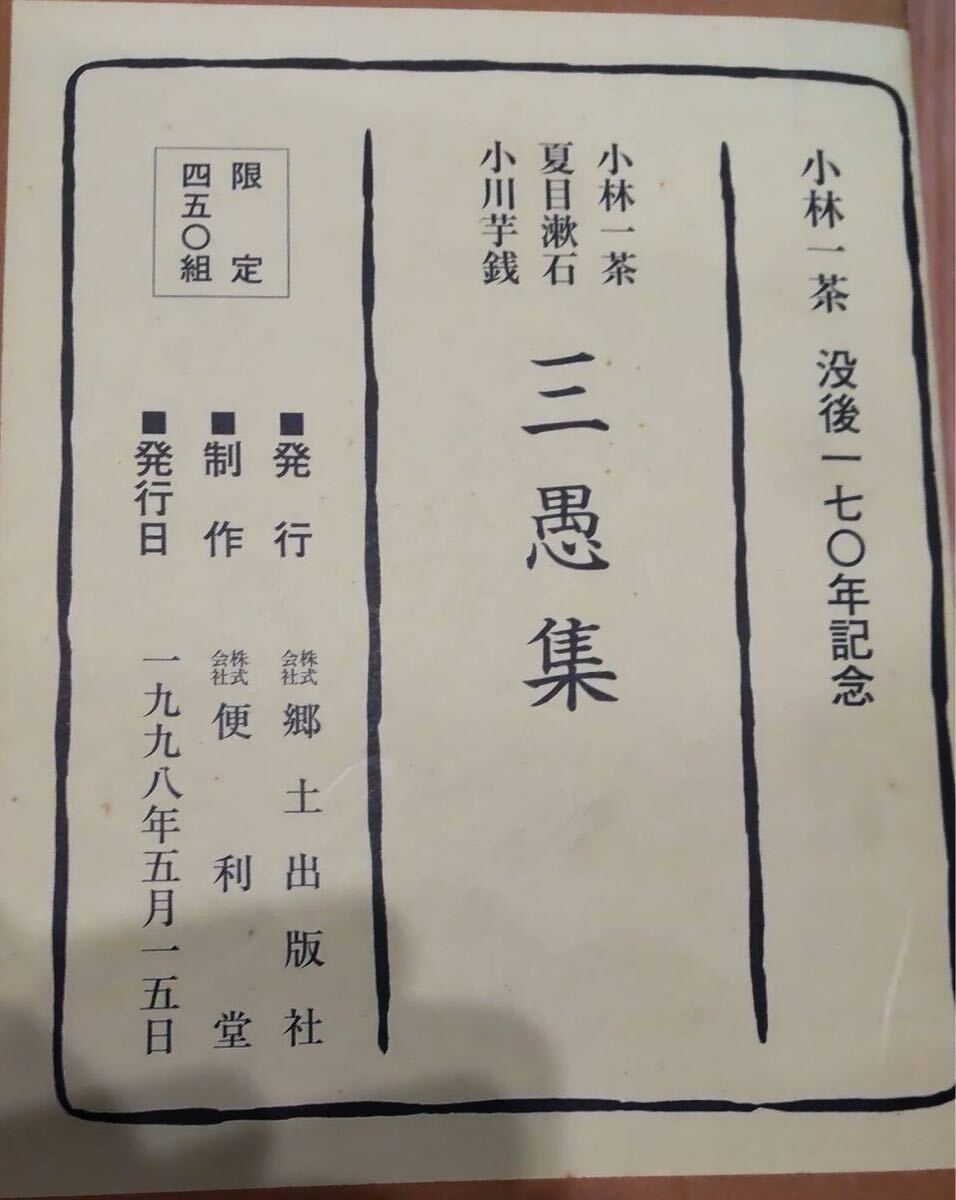 小林一茶 没後一七〇年記念
小林一茶
夏目漱石
小川芋銭
三愚集
■発行 株式会社 郷土出版社
■制作 株式会社 便利堂
■発行日 一九九八年五月一五日
限定
四五〇組